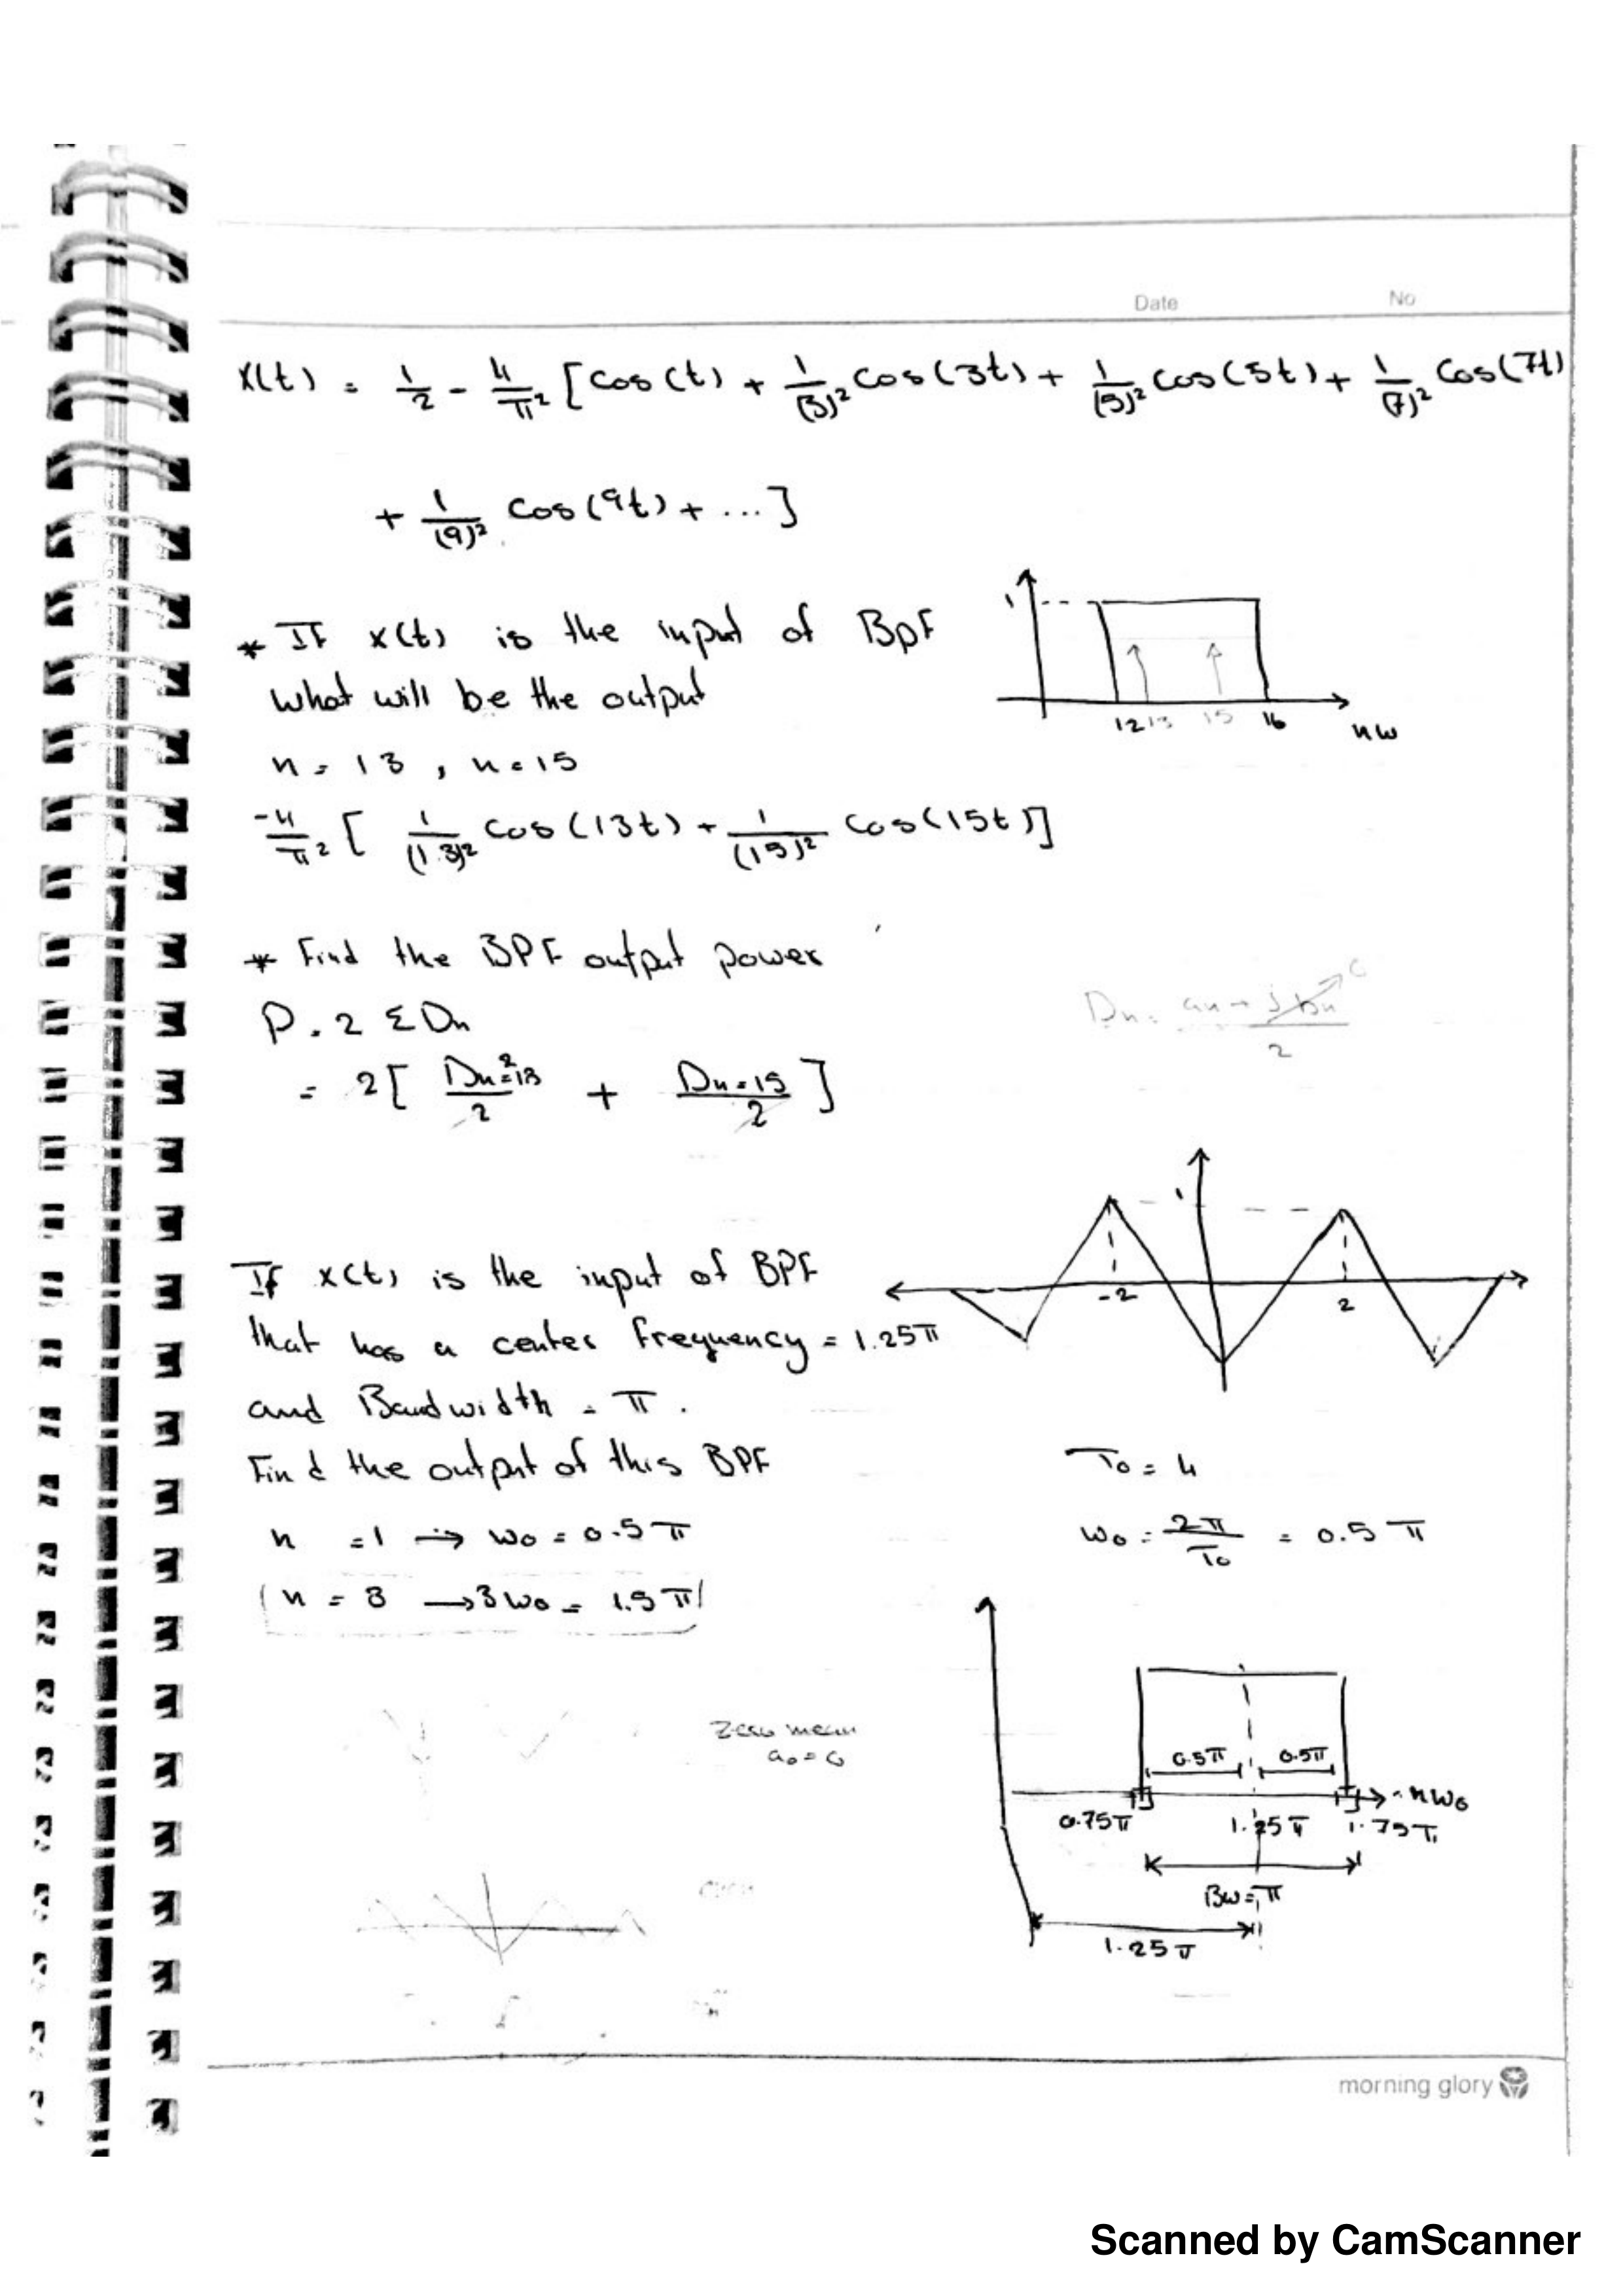 Date No
x(t) = 1/2 - 4/π² [cos(t) + 1/(3)² cos(3t) + 1/(5)² cos(5t) + 1/(7)² cos(7t)
+ 1/(9)² cos(9t) + ...]
* If x(t) is the input of BPF
what will be the output
1
12 13 15 16
nw
n = 13 , n = 15
-4/π² [ 1/(13)² cos(13t) + 1/(15)² cos(15t)]
* Find the BPF output power
P = 2 Σ Dn
Dn = an - jbn / 2 → 0
= 2 [ Dn²=13 / 2 + Dn=15 / 2 ]
1
-2 2
If x(t) is the input of BPF
that has a center frequency = 1.25π
and Bandwidth = π .
Find the output of this BPF
T₀ = 4
n = 1 → w₀ = 0.5π
w₀ = 2π/T₀ = 0.5π
n = 3 → 3w₀ = 1.5π
Zero mean
a₀ = 0
0.5π 0.5π
nw₀
0.75π 1.25π 1.75π
BW = π
1.25π
even
morning glory
Scanned by CamScanner